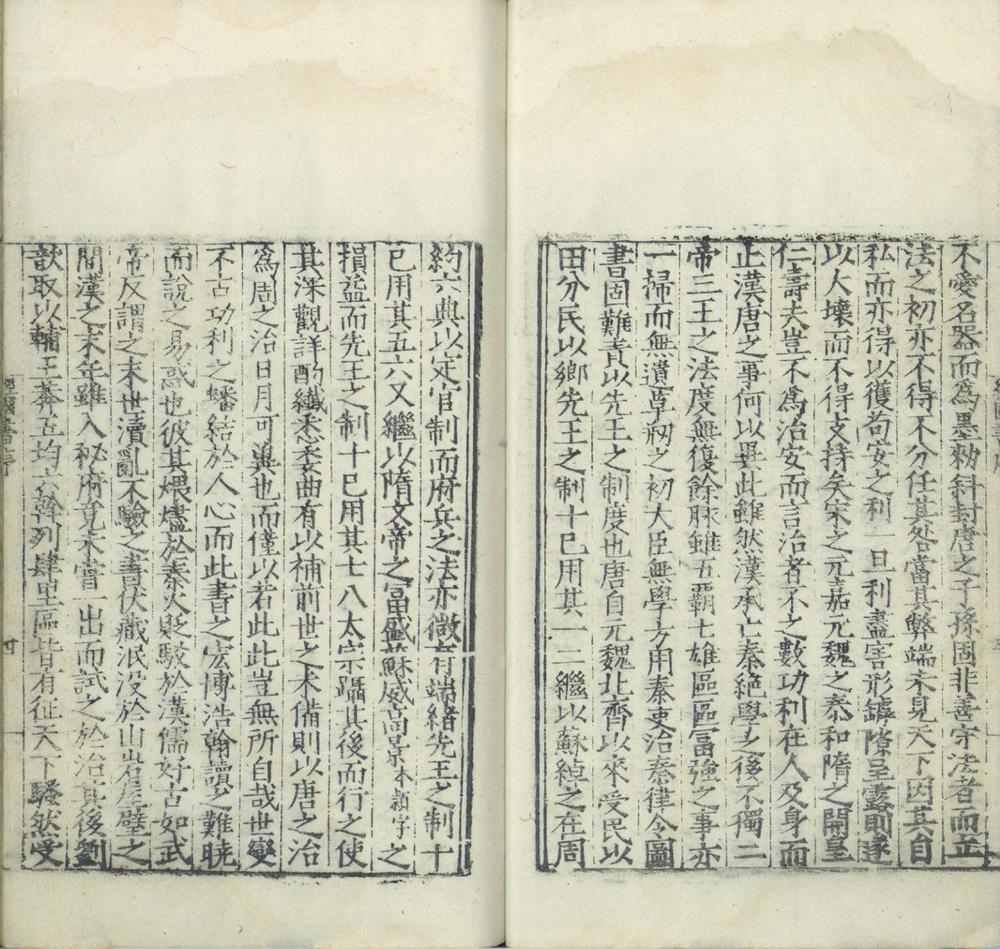 不愛名器而爲墨勑斜封唐之子孫固非善守法者而立
法之初亦不得不分任其咎當其弊端未見天下因其自
私而亦得以獲苟安之利一旦利盡害形罅隙呈露則遂
以大壞而不得支持矣宋之元嘉元魏之泰和隋之開皇
仁壽夫豈不爲治安而言治者不之數功利在人及身而
止漢唐之事何以異此雖然漢承亡秦絕學之後不獨二
帝三王之法度無復餘脉雖五霸七雄區區冨強之事亦
一掃而無遺草刱之初大臣無學方用秦吏治秦律令圖
書固難責以先王之制度也唐自元魏北齊以來受民以
田分民以鄉先王之制十已用其一二繼以蘇綽之在周
約六典以定官制而府兵之法亦微有端緒先王之制十
已用其五六又繼以隋文帝之冨盛蘇威高熲本穎字之
損益而先王之制十已用其七八太宗躡其後而行之使
其深觀詳酌纖悉委曲有以補前世之未備則以唐之治
爲周之治日月可兾也而僅以若此此豈無所自哉世變
不古功利之蟠結於人心而此書之宏博浩翰讀之難曉
而說之易惑也彼其煨燼於秦火貶駮於漢儒好古如武
帝反謂之末世瀆亂不驗之書伏藏泯没於山岩屋壁之
間漢之末年雖入秘府竟未嘗一出而試之於治其後劉
歆取以輔王莽五均六斡列肆里區皆有征天下騷然受